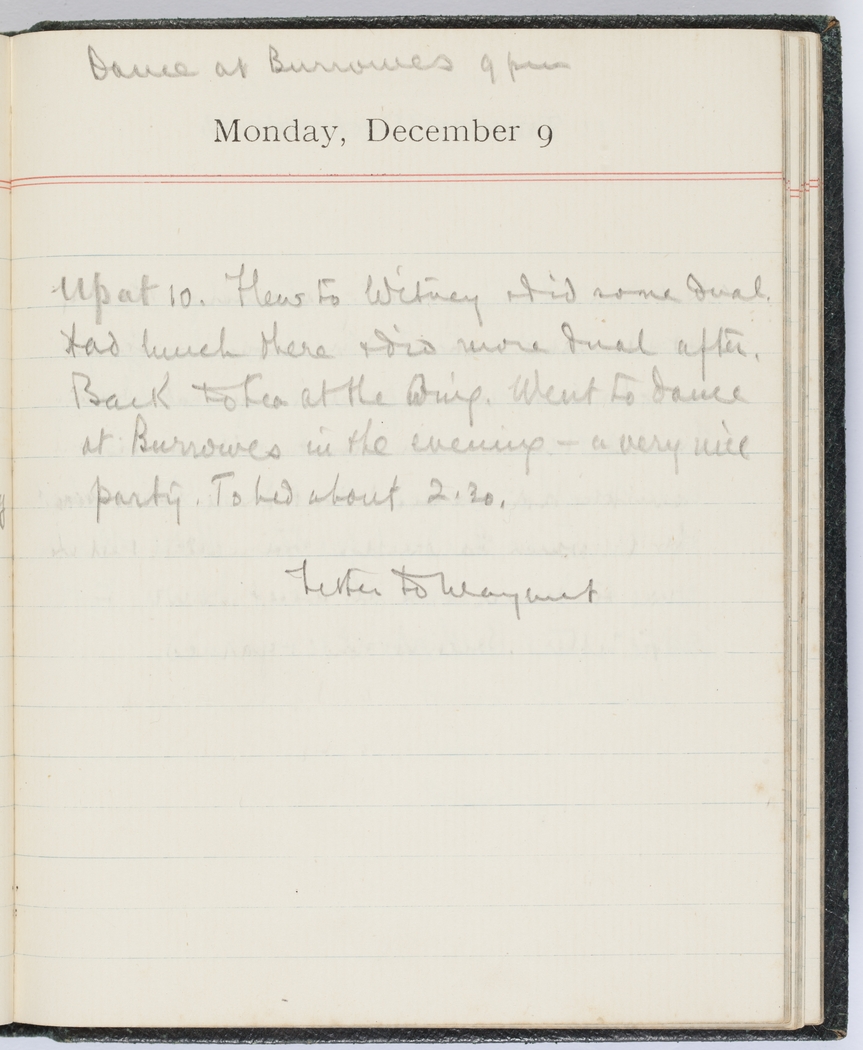 Dance at Burrowes 9 pm
Monday, December 9
Up at 10. Flew to Witney & did some dual.
Had lunch there & did more dual after.
Back to tea at the Wing. Went to dance
at Burrowes in the evening – a very nice
party. To bed about 2.30.
Letter to